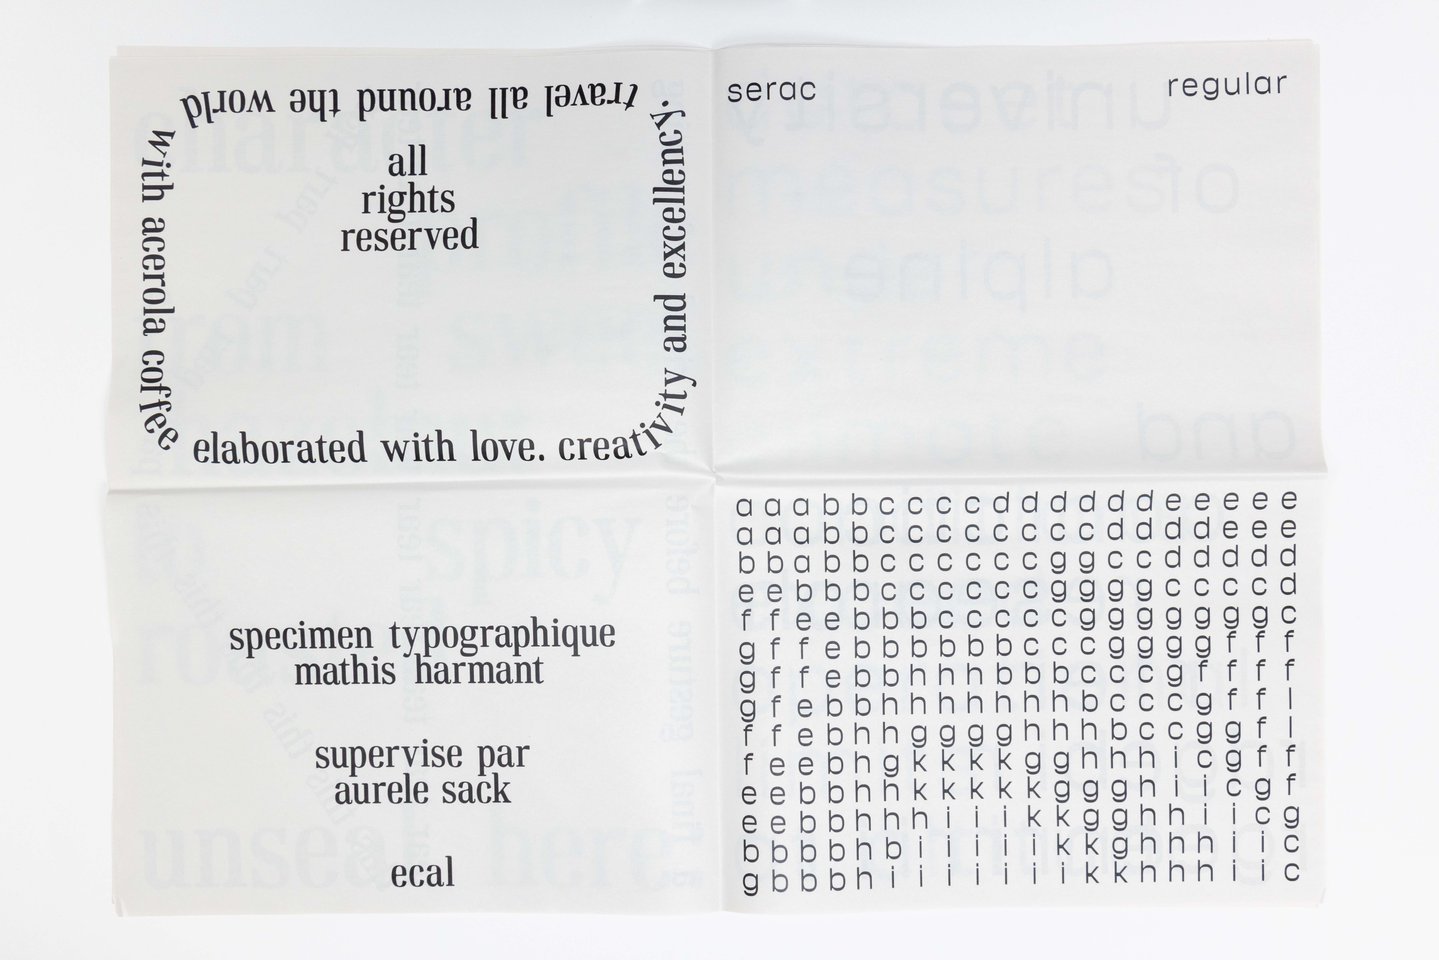 travel all around the world
with acerola coffee
elaborated with love. creativity and excellency.
all
rights
reserved
serac
regular
specimen typographique
mathis harmant
supervise par
aurele sack
ecal
a a a b b c c c c d d d d d d e e e e e
a a a b b c c c c c c c c d d d d e e e
b b a b b c c c c c c g g c c d d d d d
e e b b b c c c c c c g g g g c c c c d
f f e e b b b c c c c c g g g g g g g c
g f f e b b b b b b c c c g g g g f f f
g f f e b b h h h b b b c c c g f f f f
g f e b b h h h h h h h b c c c g f f l
f f e b h h g g g g h h h b c c g g f l
f e e b h g k k k k g g h h h i c g f f
e e b b h h k k k k k g g g h i i c g f
e e b b h h h i i i k k g g h h i i c g
b b b b h b i i i i i k k g h h h i i c
g b b b h i i i i i i i k k h h h i i c